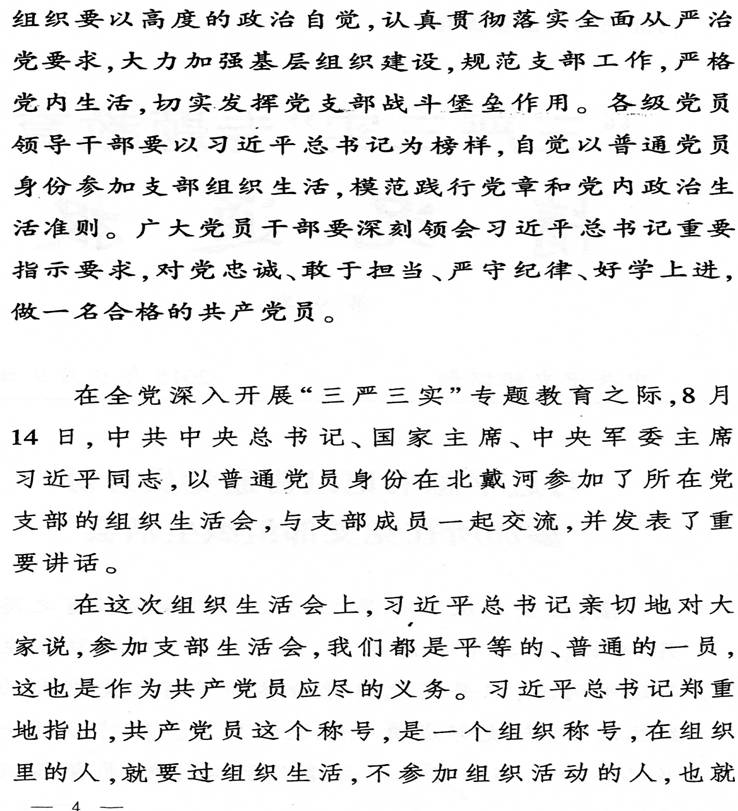 组织要以高度的政治自觉,认真贯彻落实全面从严治
党要求,大力加强基层组织建设,规范支部工作,严格
党内生活,切实发挥党支部战斗堡垒作用。各级党员
领导干部要以习近平总书记为榜样,自觉以普通党员
身份参加支部组织生活,模范践行党章和党内政治生
活准则。广大党员干部要深刻领会习近平总书记重要
指示要求,对党忠诚、敢于担当、严守纪律、好学上进,
做一名合格的共产党员。
在全党深入开展“三严三实”专题教育之际,8 月
14 日,中共中央总书记、国家主席、中央军委主席
习近平同志,以普通党员身份在北戴河参加了所在党
支部的组织生活会,与支部成员一起交流,并发表了重
要讲话。
在这次组织生活会上,习近平总书记亲切地对大
家说,参加支部生活会,我们都是平等的、普通的一员,
这也是作为共产党员应尽的义务。习近平总书记郑重
地指出,共产党员这个称号,是一个组织称号,在组织
里的人,就要过组织生活,不参加组织活动的人,也就
— 4 —